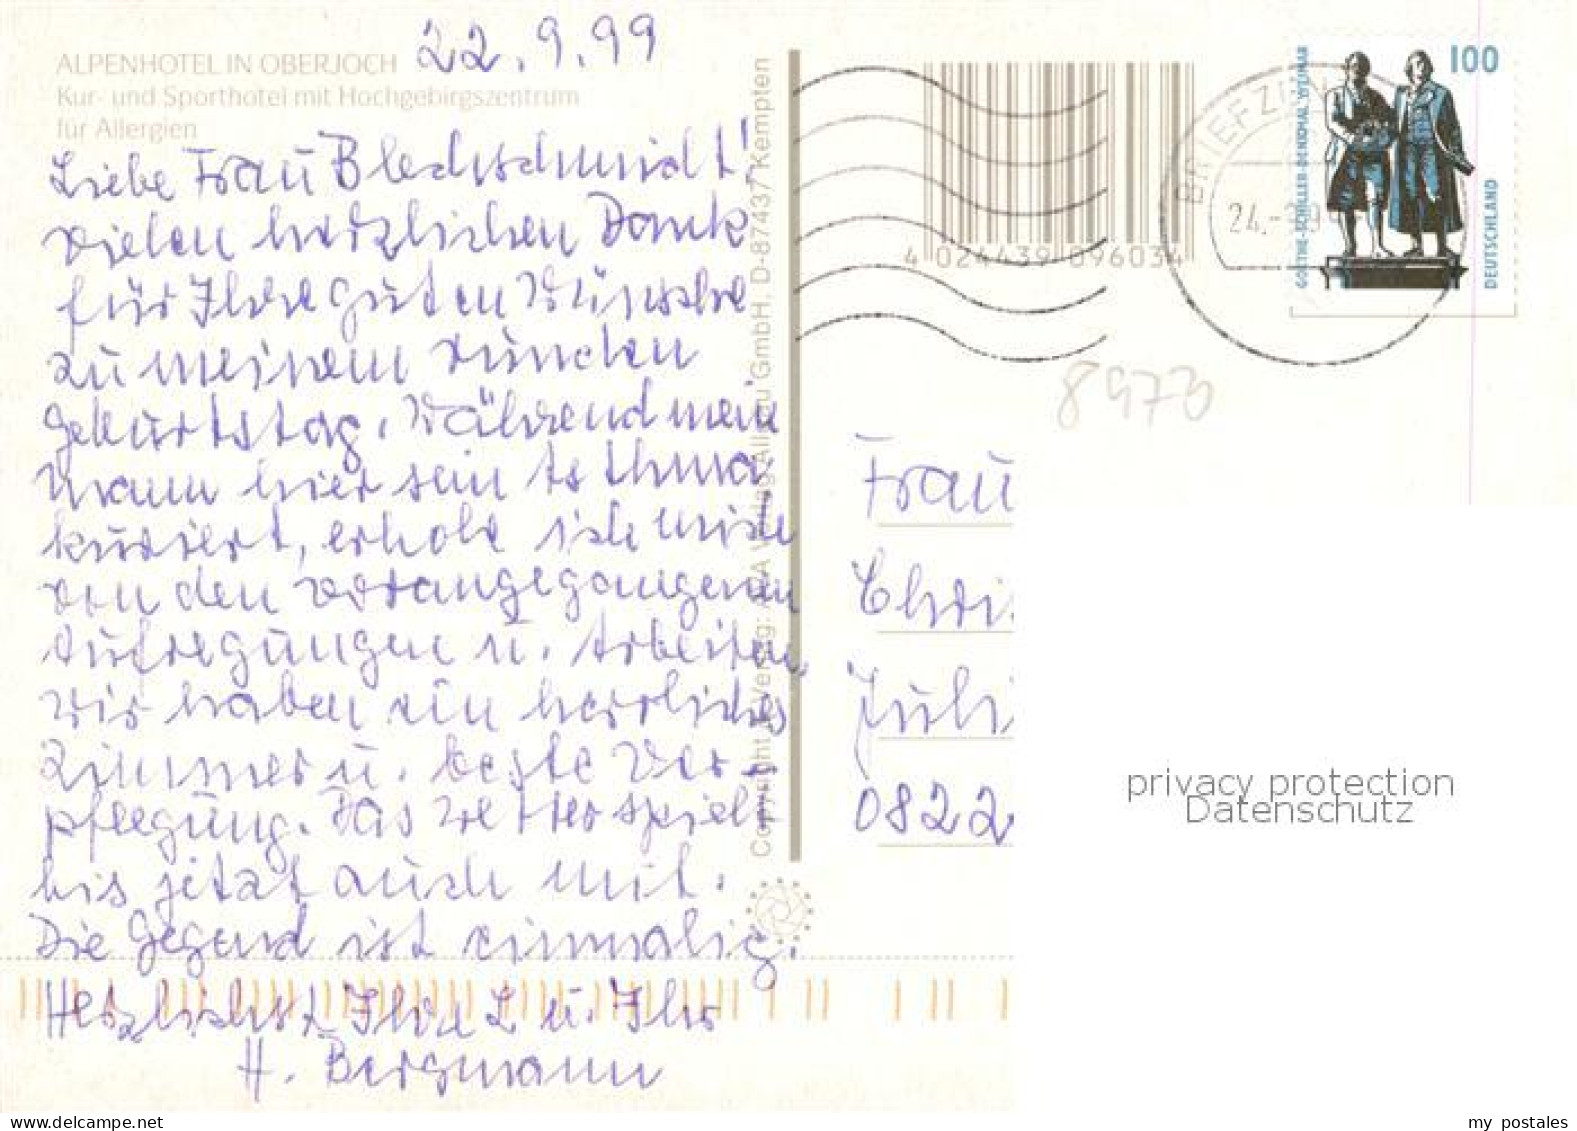 ALPENHOTEL IN OBERJOCH 22.9.99
Kur- und Sporthotel mit Hochgebirgszentrum
für Allergien
Liebe Frau Blechschmidt!
vielen herzlichen Dank
für Ihre guten Wünsche
zu meinem runden
Geburtstag. Während mein
Mann hier sein Asthma
kuriert, erhole ich mich
von den vorangegangenen
Aufregungen u. Arbeiten.
Wir haben ein herrliches
Zimmer u. beste Ver-
pflegung. Das Wetter spielt
bis jetzt auch mit.
Die Gegend ist einmalig.
Herzlichst Ihre L u. Ihr
H. Bergmann
Copyright by Verlag: AVA Verlag Allgäu GmbH, D-87437 Kempten
4 024439 096034
BRIEFZEN
24.-
100
GOETHE-SCHILLER-DENKMAL WEIMAR
DEUTSCHLAND
8973
Frau
Chris
Juli
0822
privacy protection
Datenschutz
my postales